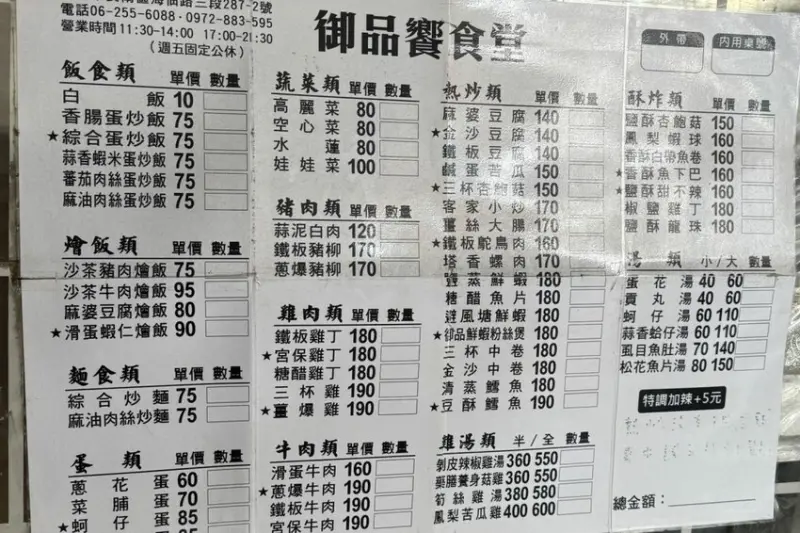 電話06-255-6088·0972-883-595
營業時間11:30-14:00 17:00-21:30
(週五固定公休)
御品饗食堂
外帶
內用桌號
飯食類 單價 數量
白飯 10
香腸蛋炒飯 75
★綜合蛋炒飯 75
蒜香蝦米蛋炒飯 75
蕃茄肉絲蛋炒飯 75
麻油肉絲蛋炒飯 75
燴飯類 單價 數量
沙茶豬肉燴飯 75
沙茶牛肉燴飯 95
麻婆豆腐燴飯 80
★滑蛋蝦仁燴飯 90
麵食類 單價 數量
綜合炒麵 75
麻油肉絲炒麵 75
蛋類 單價 數量
蔥花蛋 60
菜脯蛋 70
★蚵仔蛋 85
蔬菜類 單價 數量
高麗菜 80
空心菜 80
水蓮 80
娃娃菜 100
豬肉類 單價 數量
蒜泥白肉 120
鐵板豬柳 170
蔥爆豬柳 170
雞肉類 單價 數量
鐵板雞丁 180
★宮保雞丁 180
糖醋雞丁 180
三杯雞 190
★薑爆雞 190
牛肉類 單價 數量
滑蛋牛肉 160
★蔥爆牛肉 190
鐵板牛肉 190
宮保牛肉 190
熱炒類 單價 數量
麻婆豆腐 140
★金沙豆腐 140
鐵板豆腐 140
鹹蛋苦瓜 150
★三杯杏鮑菇 150
客家小炒 170
薑絲大腸 170
★鐵板鴕鳥肉 160
塔香螺肉 170
鹽蒸鮮蝦 180
糖醋魚片 180
避風塘鮮蝦 180
★御品鮮蝦粉絲煲 180
三杯中卷 180
金沙中卷 180
清蒸鱈魚 190
★豆酥鱈魚 190
雞湯類 半/全 數量
剝皮辣椒雞湯 360 550
藥膳養身菇雞 360 550
筍絲雞湯 380 580
鳳梨苦瓜雞 400 600
酥炸類 單價 數量
鹽酥杏鮑菇 150
鳳梨蝦球 160
香酥白帶魚卷 160
★香酥魚下巴 160
★鹽酥甜不辣 160
椒鹽雞丁 180
鹽酥龍珠 180
湯類 小/大 數量
蛋花湯 40 60
貢丸湯 40 60
蚵仔湯 60 110
蒜香蛤仔湯 60 110
虱目魚肚湯 70 140
松花魚片湯 80 150
特調加辣+5元
總金額: